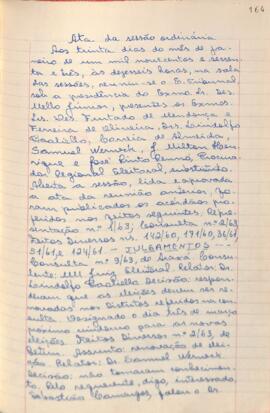 164
Ata da sessão ordinária
Aos trinta dias do mês de ja-
neiro de um mil novecentos e sessen-
ta e três, às dezesseis horas, na sala
das sessões, reuniu-se o E. Tribunal
sob a presidência do Exmo. Sr. Des.
Mello Júnior, presentes os Exmos.
Srs. Des. Furtado de Mendonça e
Ferreira de Oliveira, Drs. Lindolfo
Paoliello, Correia de Almeida,
Samuel Werneck, J. Milton Hen-
rique e José Pinto Renno, Procura-
dor Regional Eleitoral, substituto.
Aberta a sessão, lida e aprovada
a ata da reunião anterior, fo-
ram publicados os acórdãos pro-
feridos nos feitos seguintes: Repre-
sentação nº 1/63; Consulta nº 2/63;
Feitos Diversos ns. 142/60, 191/60, 36/61,
51/61 e 124/61 — JULGAMENTOS —
Consulta nº 9/63, de Araxá. Consu-
lente: MM. Juiz Eleitoral. Relator: Dr.
Lindolfo Paoliello. Decisão: respon-
deram que as eleições devem ser re-
novadas nos distritos referidos na con-
sulta. Designado o dia três de março
próximo vindouro para as novas
eleições. Feitos Diversos nº 2/63, de
Betim. Assunto: renovação de elei-
ção. Relator: Dr. Samuel Werneck.
Decisão: não tomaram conhecimen-
to. Pelo requerente, digo, interessado,
Sebastião Camargos, falou o Dr.